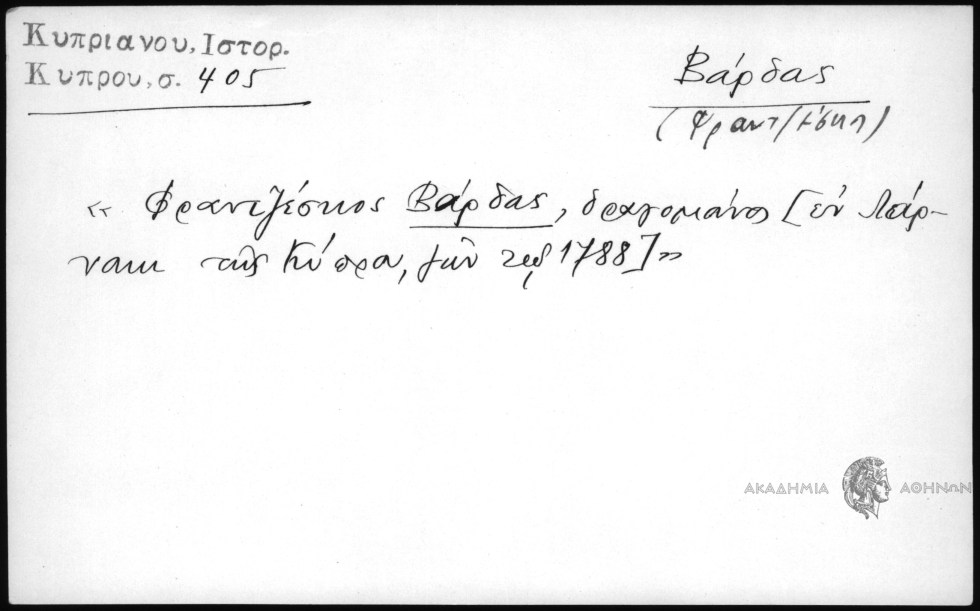 Κυπριανου, Ιστορ.
Κυπρου, σ. 405
Βάρδας
(Φραντζέσκος)
« Φραντζέσκος Βάρδας, δραγομάνος [ἐν Λάρ-
νακι τῆς Κύπρου, τῷ 1788]»
ΑΚΑΔΗΜΙΑ ΑΘΗΝΩΝ